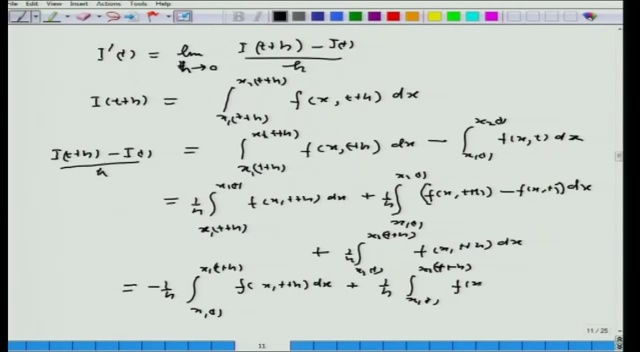 I'(t) = lim h→0 (I(t+h) - I(t))/h
I(t+h) = ∫_{x₁(t+h)}^{x₂(t+h)} f(x, t+h) dx
(I(t+h) - I(t))/h = ∫_{x₁(t+h)}^{x₂(t+h)} f(x, t+h) dx - ∫_{x₁(t)}^{x₂(t)} f(x, t) dx
= 1/h ∫_{x₁(t+h)}^{x₁(t)} f(x, t+h) dx + 1/h ∫_{x₁(t)}^{x₂(t)} (f(x, t+h) - f(x, t)) dx
+ 1/h ∫_{x₂(t)}^{x₂(t+h)} f(x, t+h) dx
= -1/h ∫_{x₁(t)}^{x₁(t+h)} f(x, t+h) dx + 1/h ∫_{x₂(t)}^{x₂(t+h)} f(x
11 / 25
11